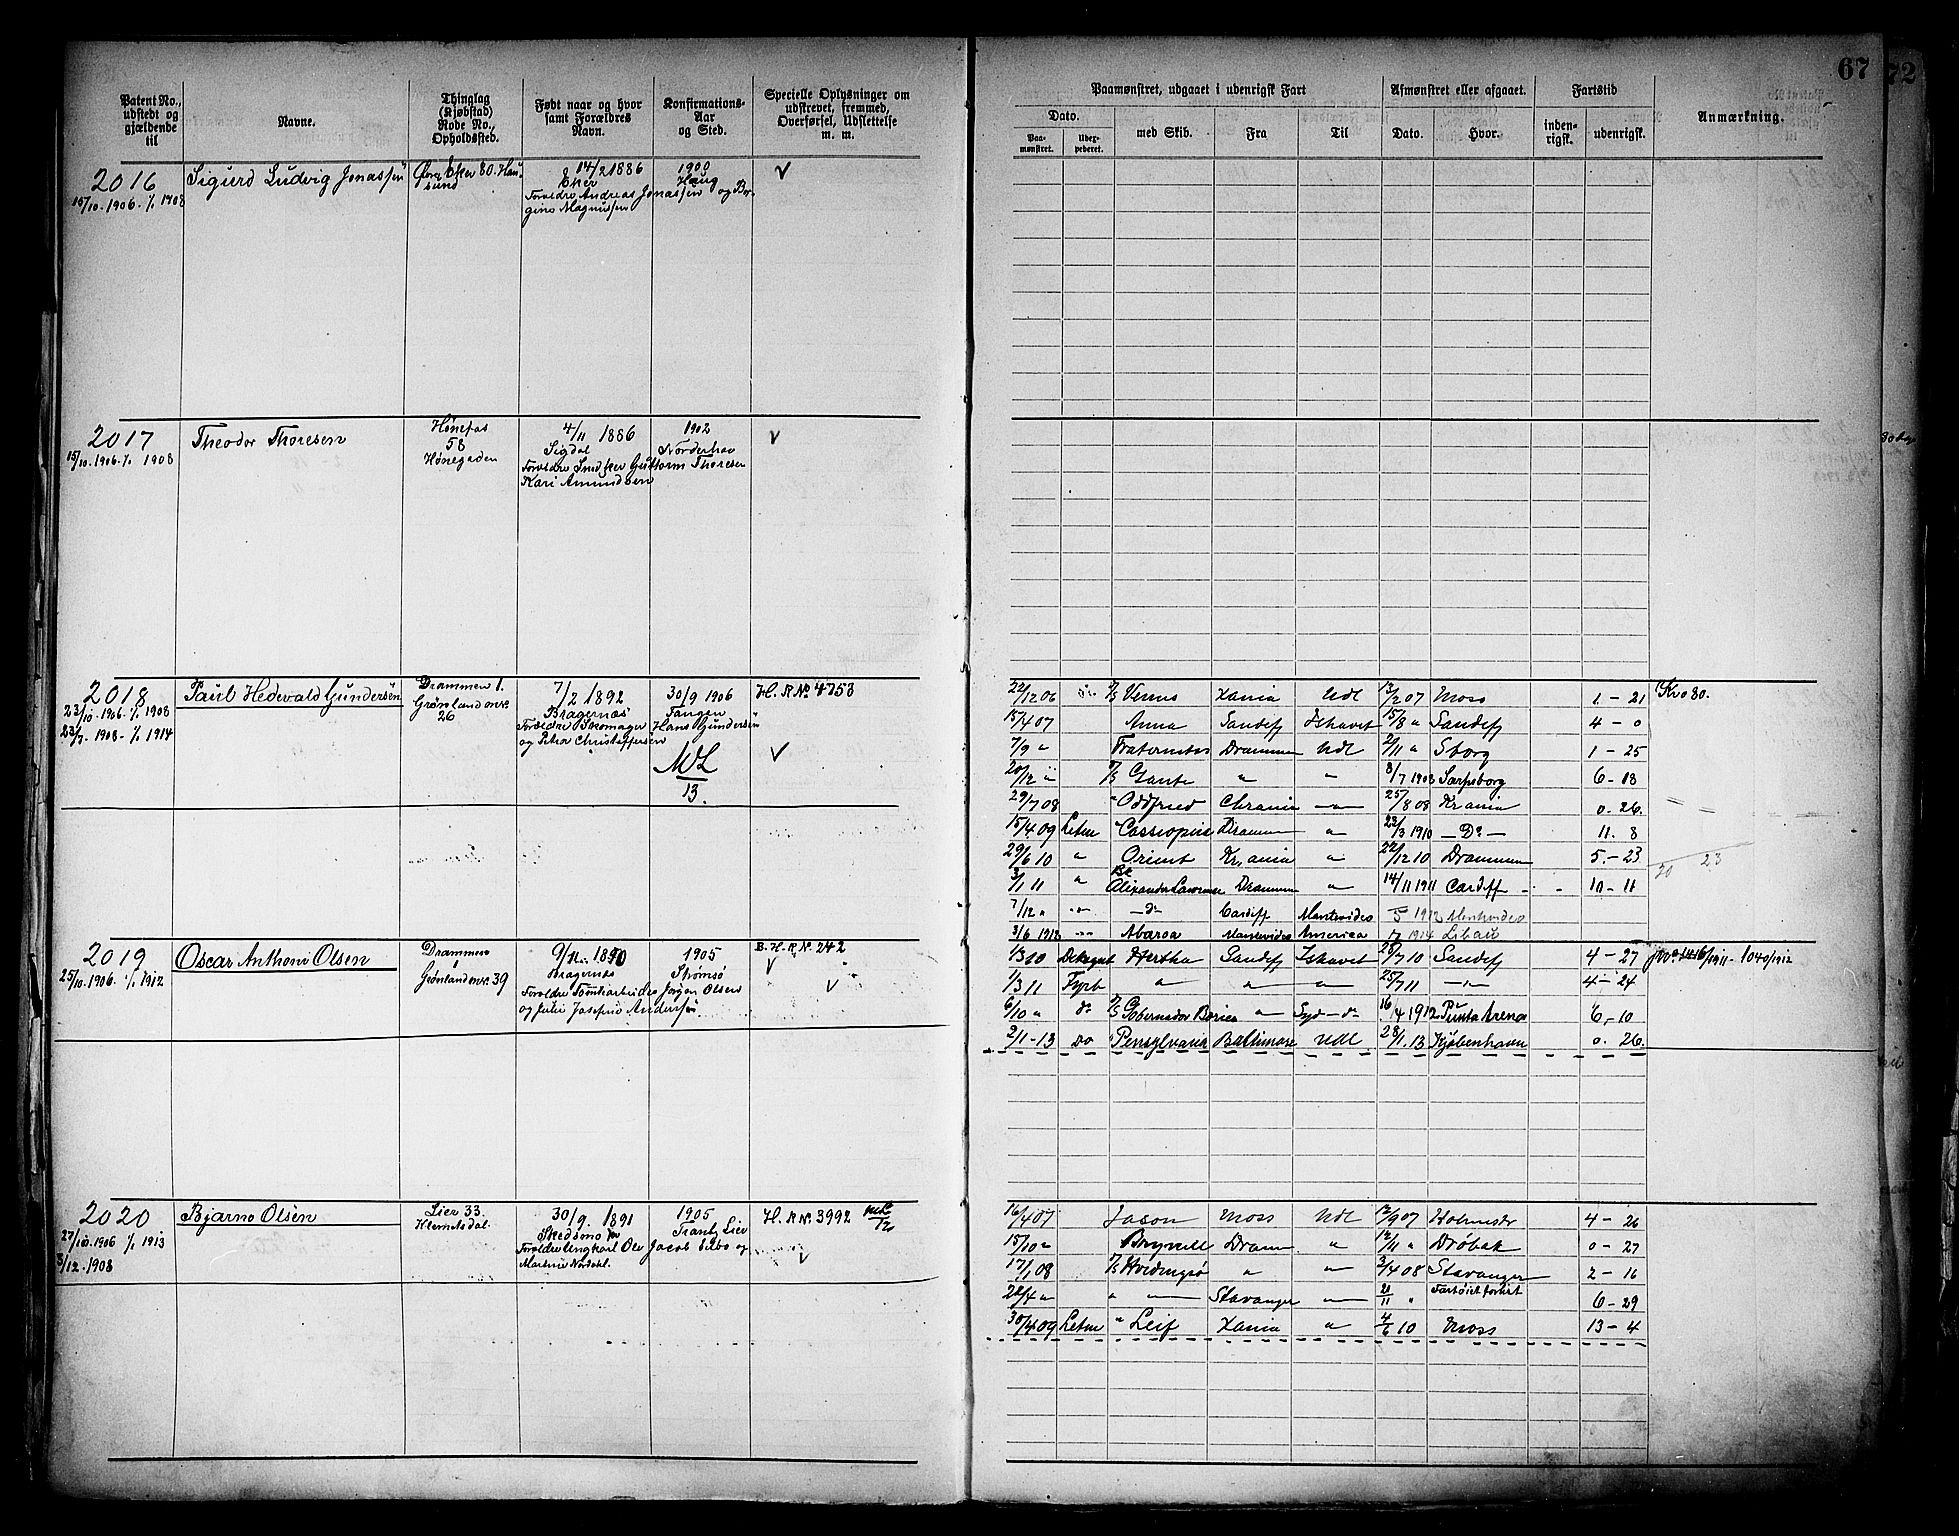 67
72
Patent No., udstedt og gjældende til
Navne.
Thinglag (Kjøbstad) Rode No., Opholdssted.
Født naar og hvor samt Forældres Navn.
Konfirmations-Aar og Sted.
Specielle Oplysninger om udskrevet, fremmed, Overførsel, Udslettelse m. m.
Paamønstret, udgaaet i udenrigsk Fart
Afmønstret eller afgaaet.
Fartstid
Anmærkning.
Dato.
Paamønstret.
med Skib.
Fra
Til
Dato.
Hvor.
indenrigsk.
udenrigsk.
2016
15/10. 1906. 1/1 1908
Sigurd Ludvig Jonassen
Øvre Eker 80. Hougsund
14/2 1886
Eker
Forældre Andreas Jonassen og
Magnussen
1900
Haug
V
2017
15/10. 1906. 1/1 1908
Theodor Thoresen
Hønefos
58
Hønegaden
4/11 1886
Sigdal
Guttorm Thoresen
Kari Amundsen
1902
Norderhov
V
2018
23/10. 1906. 1/1 1908
23/7. 1908. 1/1 1914
Paul Hedevald Gundersen
Drammen 1.
Grønland
26
7/2 1892
Bragernæs
Forældre Skomager Hans Gundersen
og Petra Christoffersen
30/9 1906
Tangen
ML
13.
H. R Nº 4753
V
22/12 06 Venus Xania Udl 13/2 07 Moss 1 - 21
15/4 07 Anna Sandefj Ishavet 15/8 " Sandefj 4 - 0
7/9 " Fraternitas Drammen Udl 2/11 " Sborg 1 - 25
20/12 " " " 8/7 1908 Sarpsborg 6 - 18
29/7 08 Oddfried Chrania 25/8 08 Krania 0. 26.
15/4 09 Letm Cassiopeia Dramm " 23/3 1910 - Do - 11. 8
29/6 10 " Orient Kr.ania " 22/12 10 Drammen 5. - 23
3/1 11 " Bk Alexander Lawrence Drammen " 14/11 1911 Cardiff 10 - 11
7/12 " - do - Cardiff Montevideo 5 1912 Montevideo
3/6 1912 Abaroa Montevideo America 1914 Libau
Kvo 80.
2019
25/10. 1906. 1/1 1912
Oscar Anthoni Olsen
Drammen
1
Grønland 39
9/11. 1890
Bragernæs
Forældre Jørgen Olsen
og Julie Josefine Andersen
1905
Strømsø
B. H. R Nº. 242
V
V
1/3 10 Hertha Sandefj Ishavet 25/7 10 Sandefj 4 - 27
1/3 11 Fyrb " " 25/7 11 4 - 24
6/10 " do Gobernador Bories " Syd 16/4 1912 Punta Arenas 6, - 10
2/1 - 13 do Pensylvana Baltimore Udl 28/1. 13 Kjøbenhavn 0. 26.
1416/1911 - 1040/1912
2020
27/10. 1906 1/1 1913
3/12. 1908
Bjarne Olsen
Lier 33.
30/9. 1891
Skedsmo
Forældre Ole Jacob og
Nordahl.
1905
Tranby Lier
H. R Nº. 3992
V
16/4 07 Jason Moss Udl 12/9 07 4 - 26
15/10 " Dram " 12/11 " Drøbak 0 - 27
17/1 08 Hvidingsø " " 3/4 08 Stavanger 2 - 16
22/4 " " Stavanger 21/11 " Fartøiet forlist 6 - 29
30/4 09 Letm " Leif Xania " 4/6 10 Moss 13 - 4